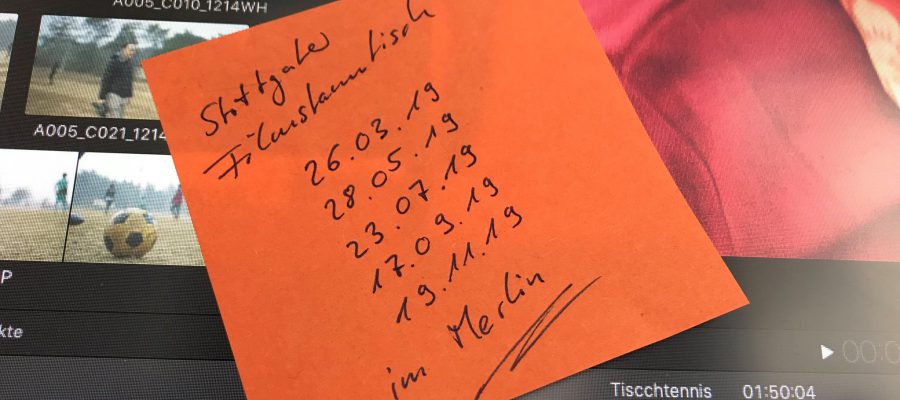 A005_C010_1214WH
A005_C021_1214
Stuttgarter
Filmstammtisch
26.03.19
28.05.19
23.07.19
17.09.19
19.11.19
im Merlin
P
kte
00:0
Tiscchtennis 01:50:04